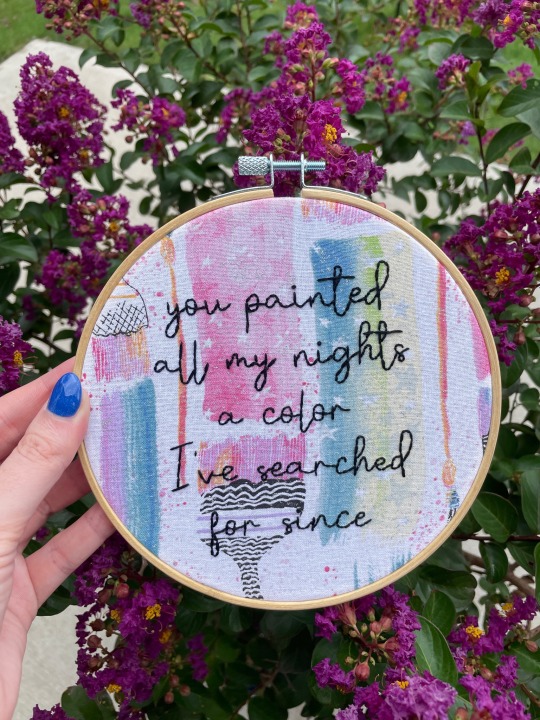 you painted
all my nights
a color
I've searched
for since